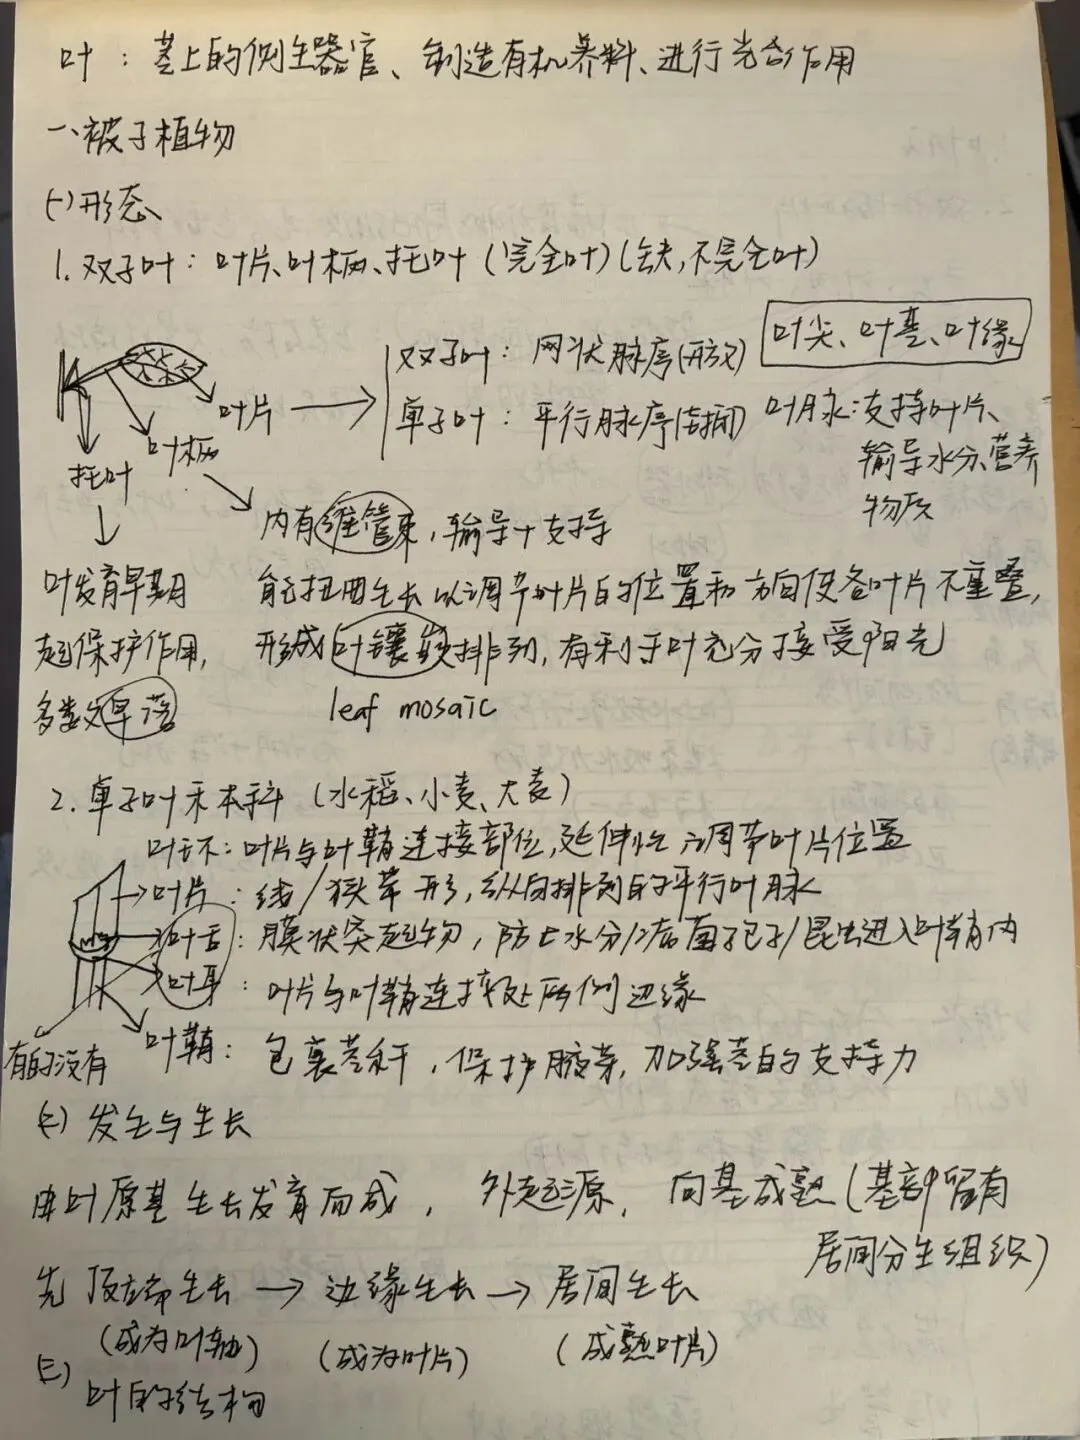 叶：茎上的侧生器官、制造有机养料、进行光合作用
一、被子植物
(一)形态
1. 双子叶：叶片、叶柄、托叶（完全叶）（缺,不完全叶）
叶尖、叶基、叶缘
双子叶：网状脉序(开放)
叶片
单子叶：平行脉序(封闭)
叶脉:支持叶片、
输导水分、营养
物质
叶柄
托叶
内有维管束，输导+支持
叶发育早期
起保护作用,
多数早落
能扭曲生长以调节叶片的位置和方向使各叶片不重叠,
形成叶镶嵌排列,有利于叶充分接受阳光
leaf mosaic
2. 单子叶禾本科（水稻、小麦、大麦）
叶环：叶片与叶鞘连接部位,延伸性 调节叶片位置
叶片：线/狭带形,纵向排列的平行叶脉
叶舌：膜状突起物，防止水分/病菌孢子/昆虫进入叶鞘内
叶耳：叶片与叶鞘连接处两侧边缘
有的没有
叶鞘：包裹茎秆，保护腋芽,加强茎的支持力
(二) 发生与生长
由叶原基生长发育而成，外起源，向基成熟(基部留有
居间分生组织)
先 顶端生长 → 边缘生长 → 居间生长
(成为叶轴) (成为叶片) (成熟叶片)
(三) 叶的结构